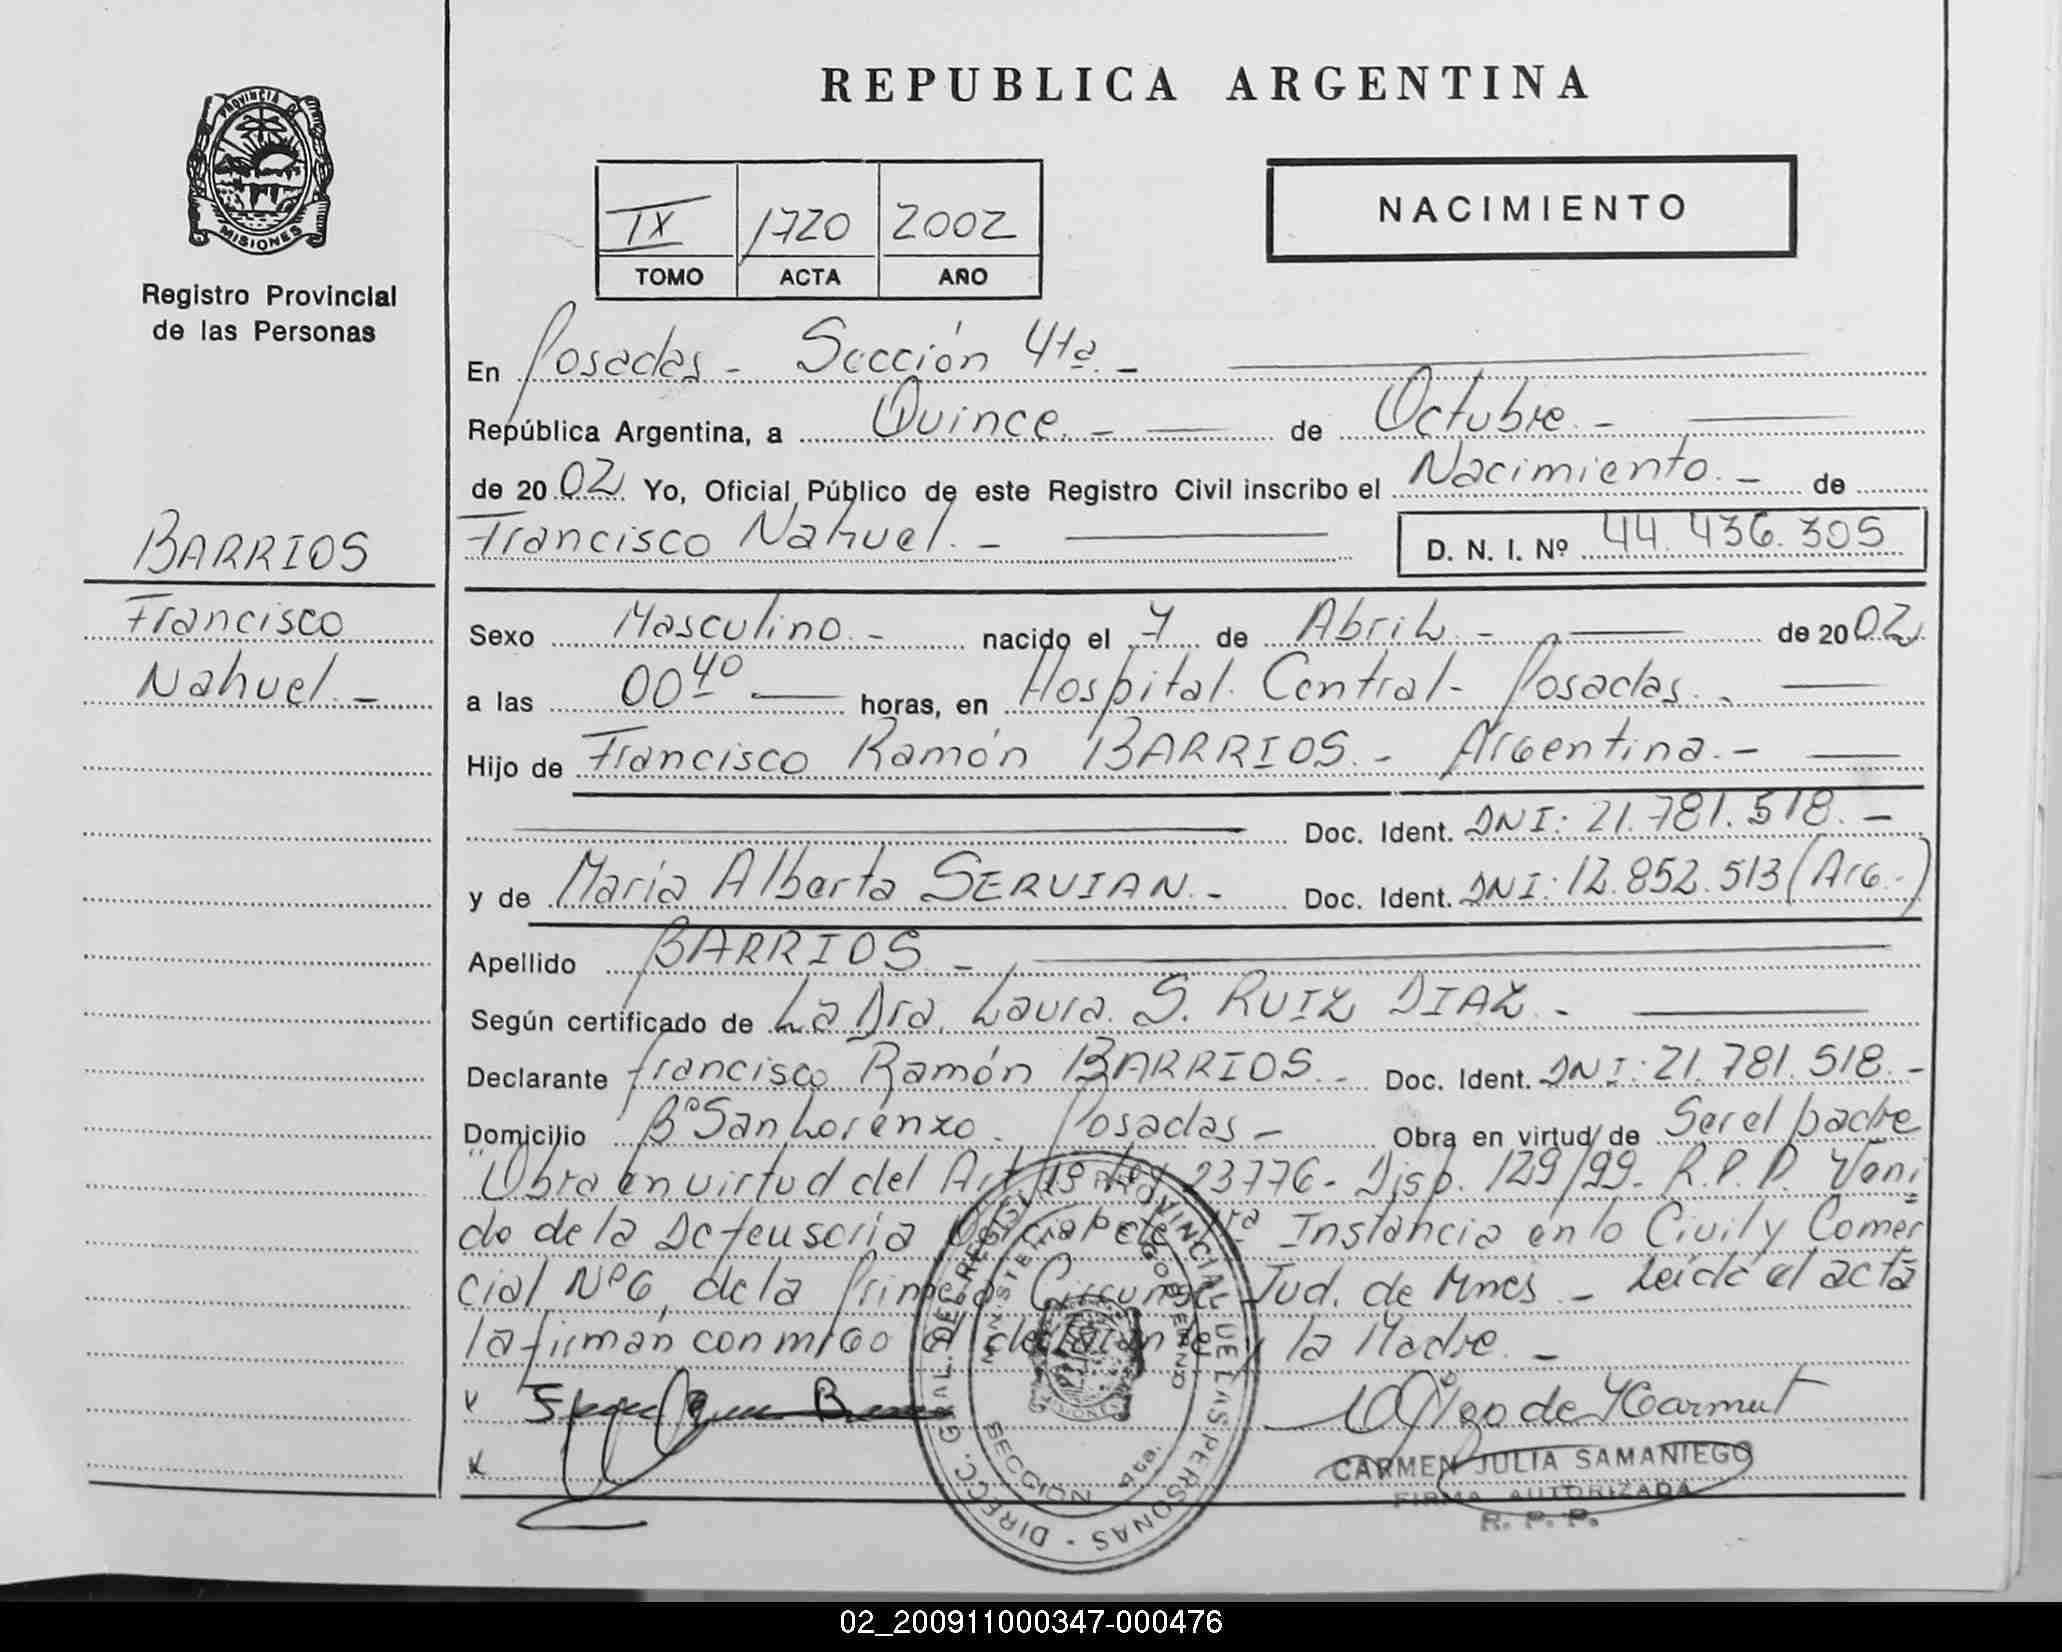 REPUBLICA ARGENTINA
PROVINCIA DE
MISIONES
Registro Provincial
de las Personas
IX 1720 2002
TOMO ACTA AÑO
NACIMIENTO
BARRIOS
Francisco
Nahuel.-
En Posadas - Sección 4ta.-
República Argentina, a Quince.- de Octubre.-
de 2002 Yo, Oficial Público de este Registro Civil inscribo el Nacimiento.- de
Francisco Nahuel.- D. N. I. Nº 44.436.305
Sexo Masculino.- nacido el 4 de Abril.- de 2002
a las 00 40 horas, en Hospital Central- Posadas.-
Hijo de Francisco Ramón BARRIOS.- Argentina.-
Doc. Ident. DNI: 21.781.518.-
y de María Alberta SERVIAN.- Doc. Ident. DNI: 12.852.513 (Arg.-)
Apellido BARRIOS.-
Según certificado de La Dra. Laura. S. RUIZ DIAZ.-
Declarante Francisco Ramón BARRIOS.- Doc. Ident. DNI: 21.781.518.-
Domicilio Bº San Lorenzo. Posadas- Obra en virtud de Ser el padre
"Obra en virtud del Art 19 ley 23776- Disp. 129/99- R.P.P. Veni
do de la Defensoría Oficial de 1ra Instancia en lo Civil y Comer
cial Nº 6, de la Primera Circunsc Jud. de Mnes.- leída el acta
la firman conmigo el declarante y la Madre.-
DIRECC. GRAL. DEL REGISTRO PROVINCIAL DE LAS PERSONAS
MINISTERIO DE GOBIERNO
SECCION 4ta.
MISIONES
CARMEN JULIA SAMANIEGO
FIRMA AUTORIZADA
R. P. P.
02_200911000347-000476